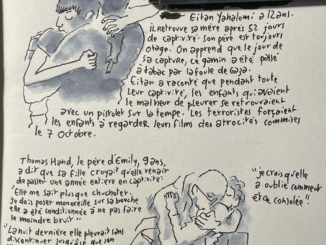 Eitan Yahalomi a 12ans.
il retrouve sa mère après 52 jours
de captivité. Son père est toujours
otage. On apprend que le jour de
sa capture, ce gamin a été passé
à tabac par la foule de Gaza.
Eitan a raconté que pendant toute
leur captivité, les enfants qui avaient
le malheur de pleurer se retrouvaient
avec un pistolet sur la tempe. Les terroristes forçaient
les enfants à regarder leur film des atrocités commises
le 7 Octobre.
Thomas Hand, le père d'Emily, 9ans,
a dit que sa fille croyait qu'elle venait
de passer une année entière en captivité.
"Elle me sait plus que chuchoter.
je dois poser mon oreille sur sa bouche
elle a été conditionnée à ne pas faire
le moindre bruit"
"La nuit dernière elle pleurait sans
discontinuer jusqu'à que son
"je crois qu'elle
a oublié comment
être consolée"